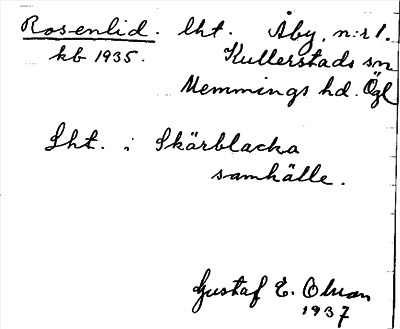 Rosenlid. lht. Åby, n:r 1.
kb 1935. Kullerstads sn
Memmings hd. Ögl
Lht. i Skärblacka
samhälle.
Gustaf E. Olson
1937